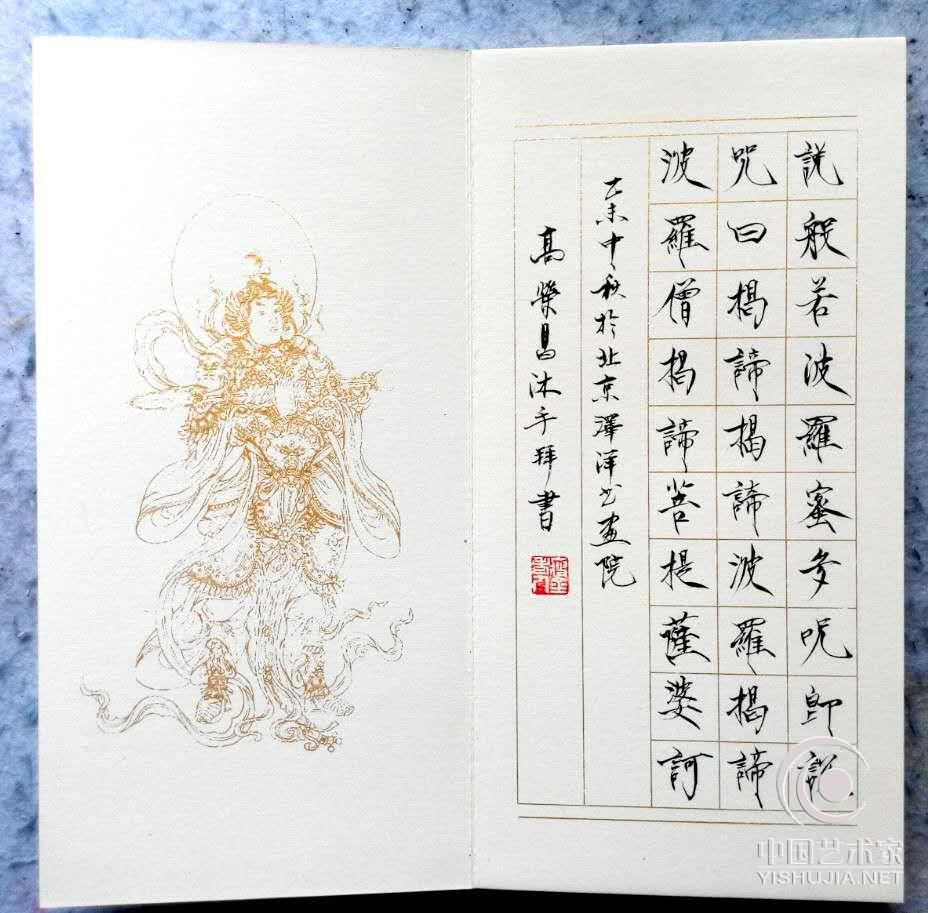 説般若波羅蜜多呪即説
咒曰揭諦揭諦波羅揭諦
波羅僧揭諦菩提薩婆訶
乙未中秋於北京澤洋书畫院
高榮昌沐手拜書
中国艺术家
YISHUJIA.NET